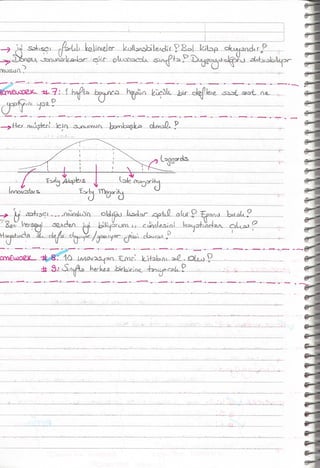 → İyi satışçı farklı kelimeler kullanabilendir! Bol kitap okuyandır!
→ Dönem sorumluları şiir okuyacak sınıfta! Duygu yoğunluğu
musun?
HOMEWORK #7: 1 hafta boyunca hergün küçük bir deftere saat saat ne
yaptığını yaz!
→ Her müşteri için sunumun bambaşka olmalı!
Laggards
Innovators
Early Adopters
Early Majority
Late majority
→ İyi satışçı... mümkün olduğu kadar aptal olur!
Ben herşeyi senden iyi biliyorum.. cümlesini hayatından çıkar!
Hayatında ilk defa duyuyor/yaşıyor gibi davran!
HOMEWORK #8: 10. inovasyon Emri kitabını al. Oku!
#9: Sınıfta herkes birbirine tanıyacak!